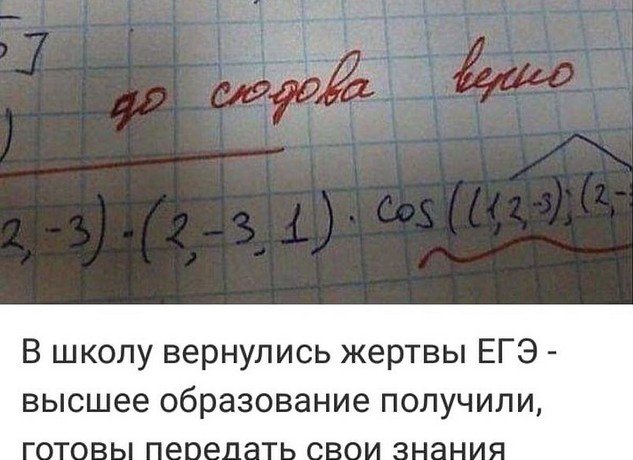 5]
до сюдова верно
)
2,-3)·(2,-3,1)·cos((1,2,-3);(2,-
В школу вернулись жертвы ЕГЭ -
высшее образование получили,
готовы передать свои знания